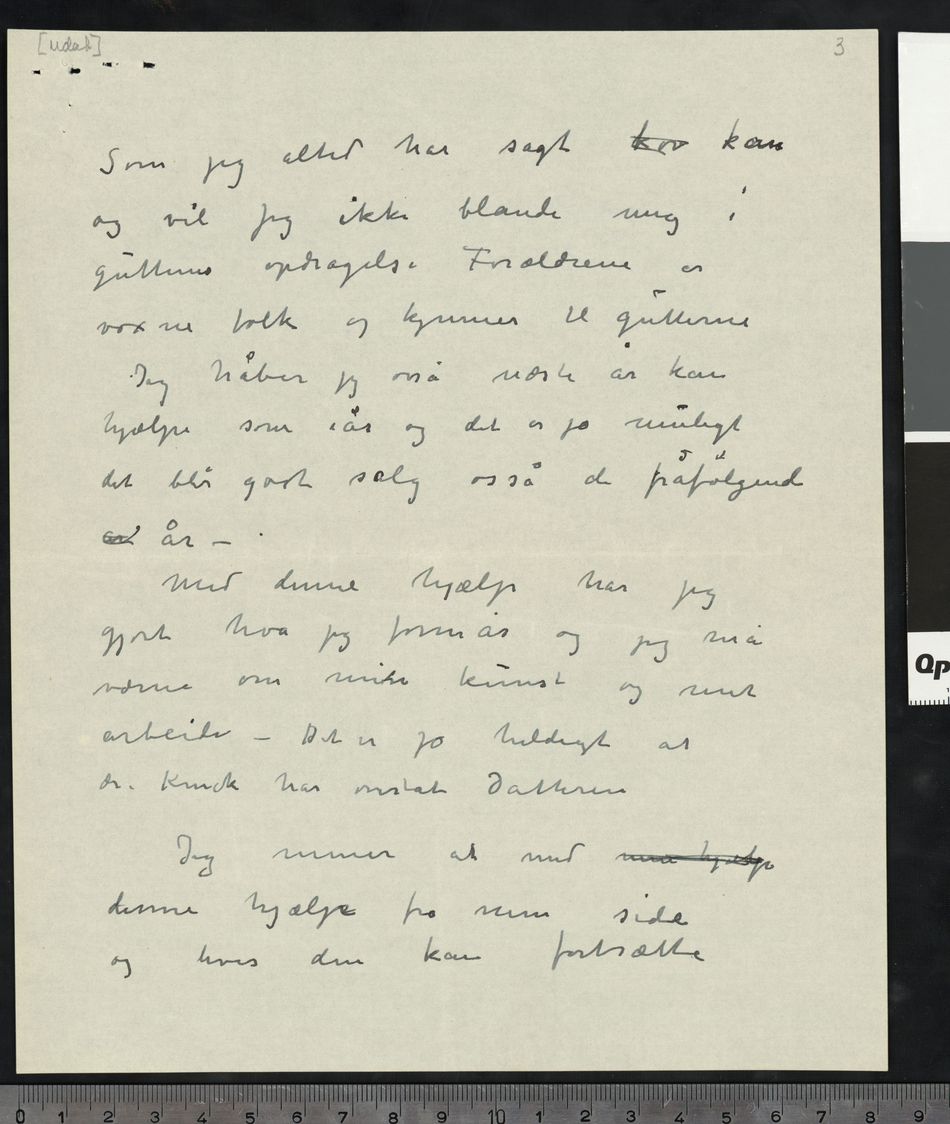 [udat]
3
Som jeg altid har sagt kan
og vil jeg ikke blande mig i
gutternes opdragelse Forældrene er
voxne folk og kjenner til gutterne
Jeg håber jeg også næste år kan
hjælpe som iår og det er jo muligt
det blir godt salg også de påfølgende
år –
Med denne hjælp har jeg
gjort hva jeg formår og jeg må
værne om min kunst og mit
arbeide – Det er jo heldigt at
dr. har Datteren
Jeg mener at med min hjælp
denne hjælpe fra min side
og hvis den kan fortsætte
Qp
0 1 2 3 4 5 6 7 8 9 10 1 2 3 4 5 6 7 8 9